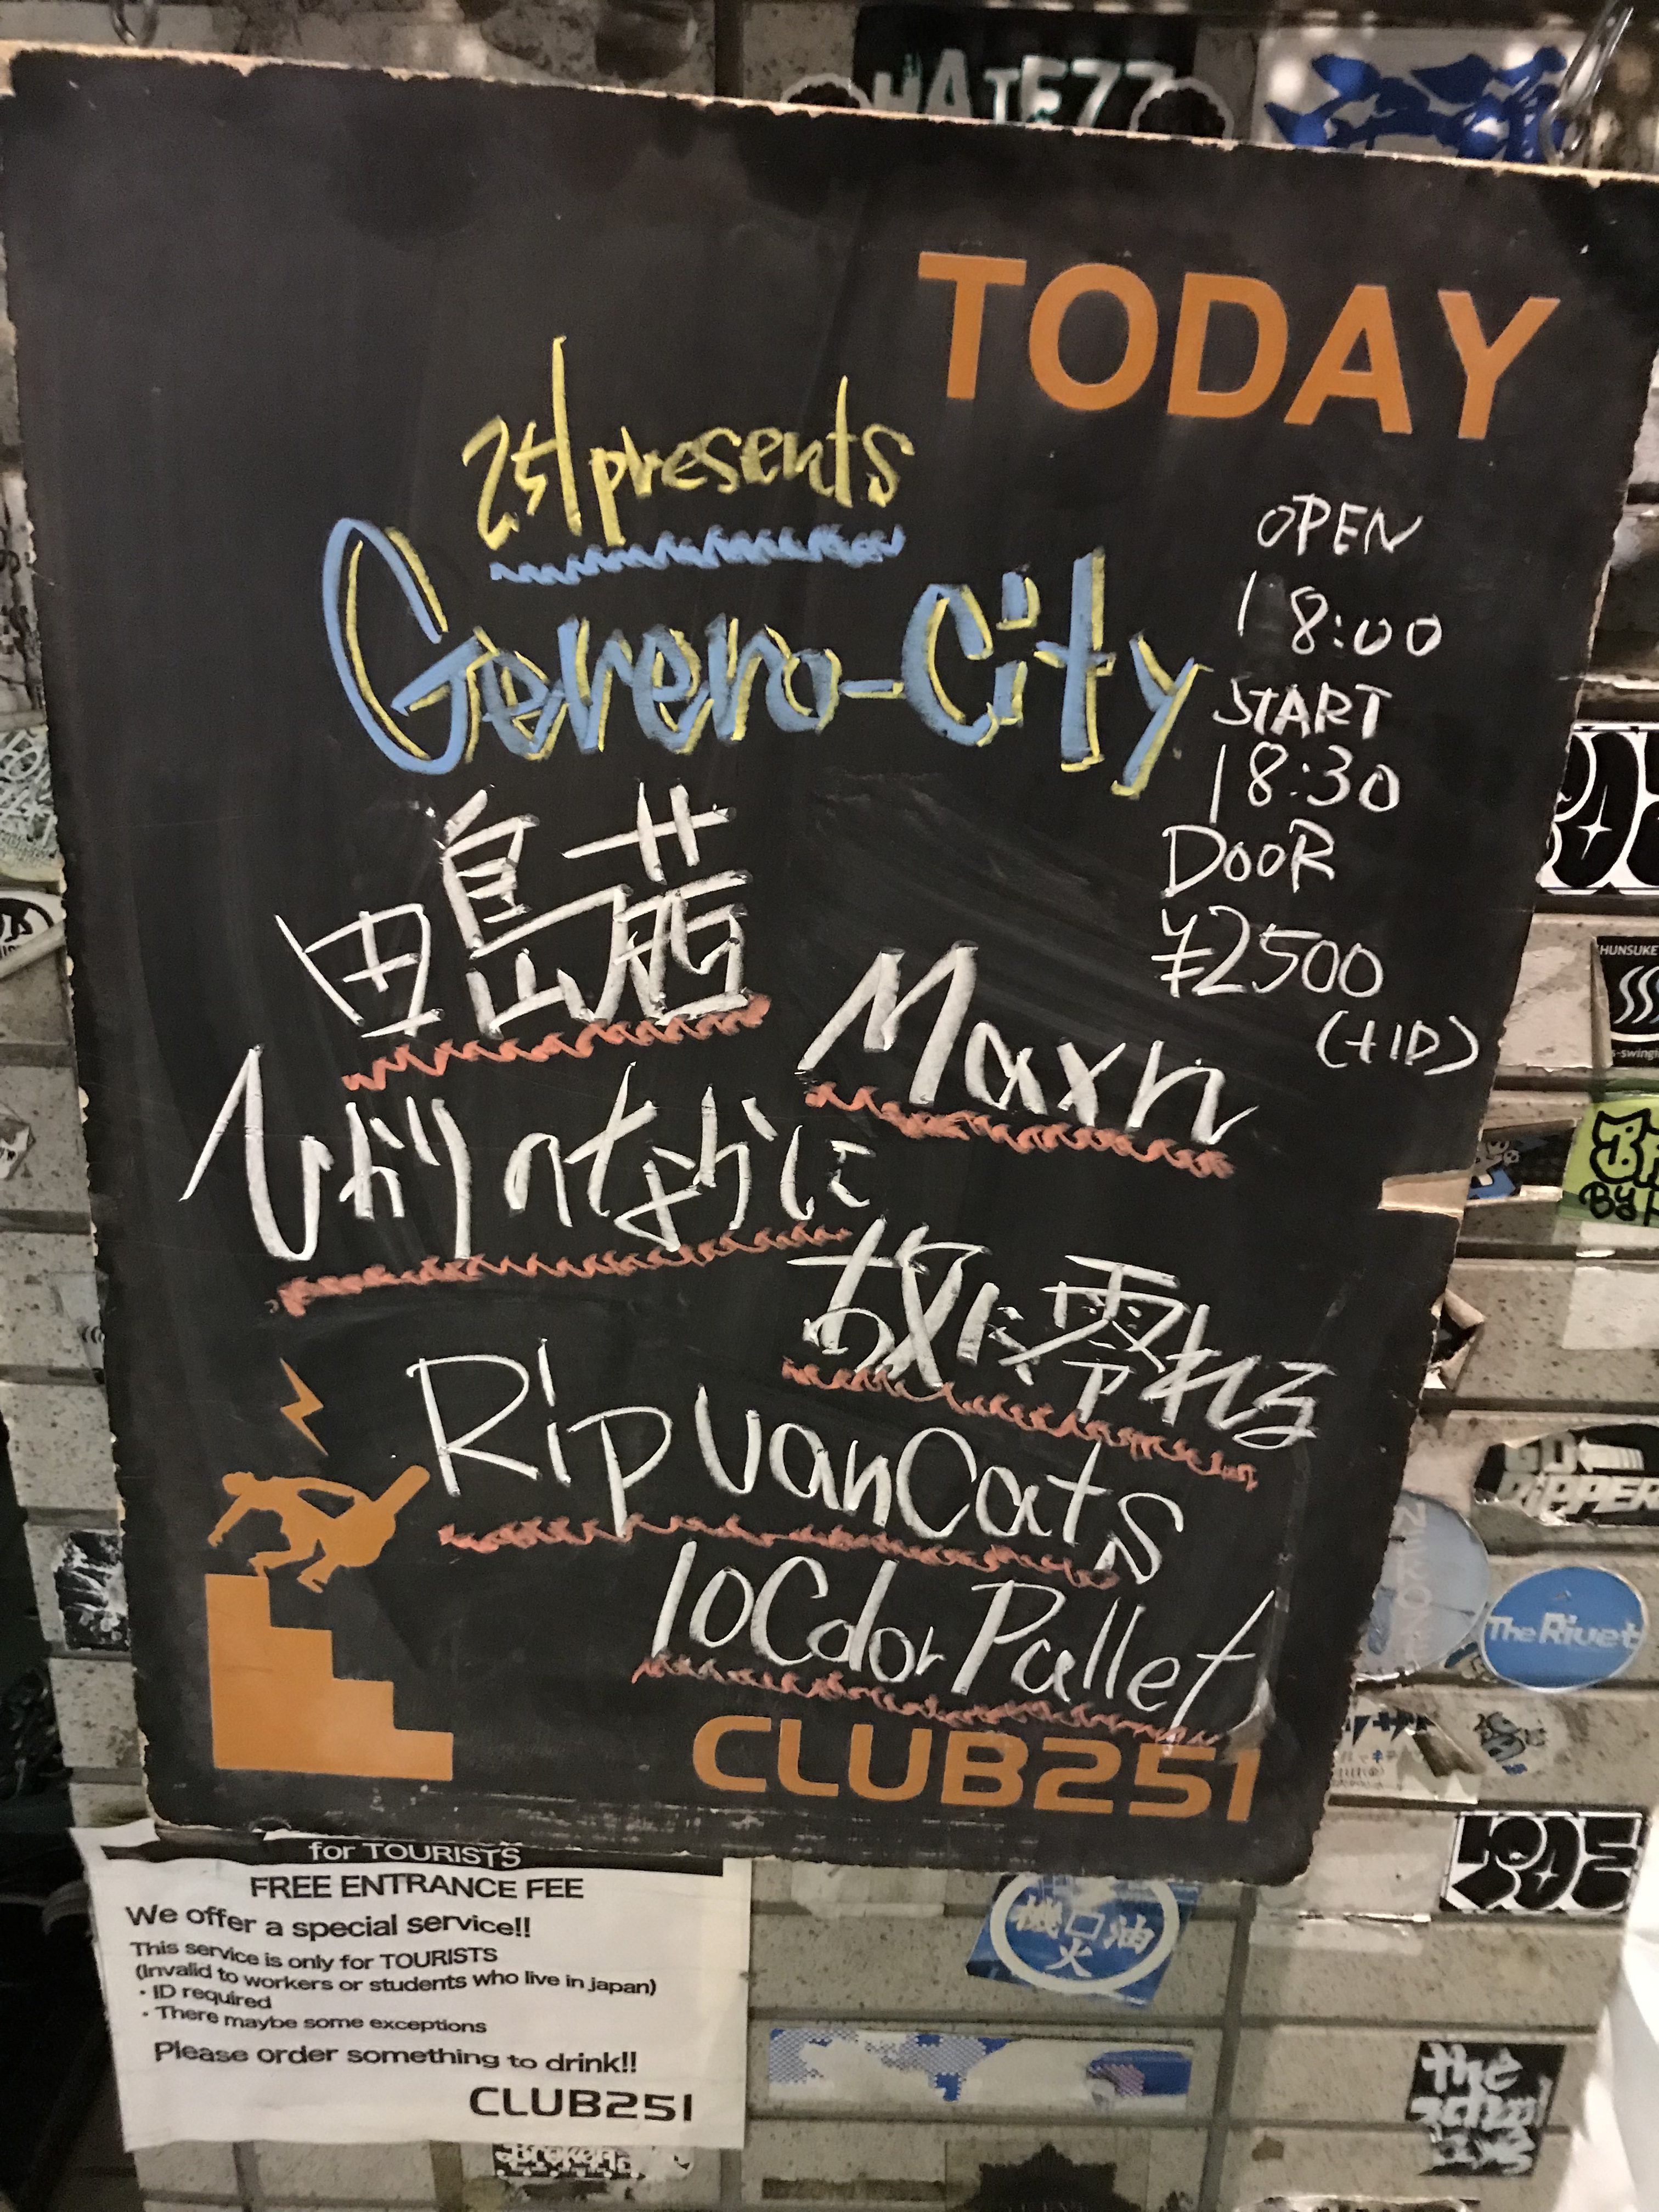 HATE77
TODAY
251 presents
Gerero-City
OPEN
18:00
START
18:30
DOOR
¥2500
(+1D)
田島茜
Maxn
ひかりのなかに
故に零れる
Rip van Cats
10 Color Pallet
CLUB251
for TOURISTS
FREE ENTRANCE FEE
We offer a special service!!
This service is only for TOURISTS
(Invalid to workers or students who live in japan)
・ID required
・There maybe some exceptions
Please order something to drink!!
CLUB251
HUNSUKE
BY
GO
RIPPER
The Rivet
機 油
火
the
school